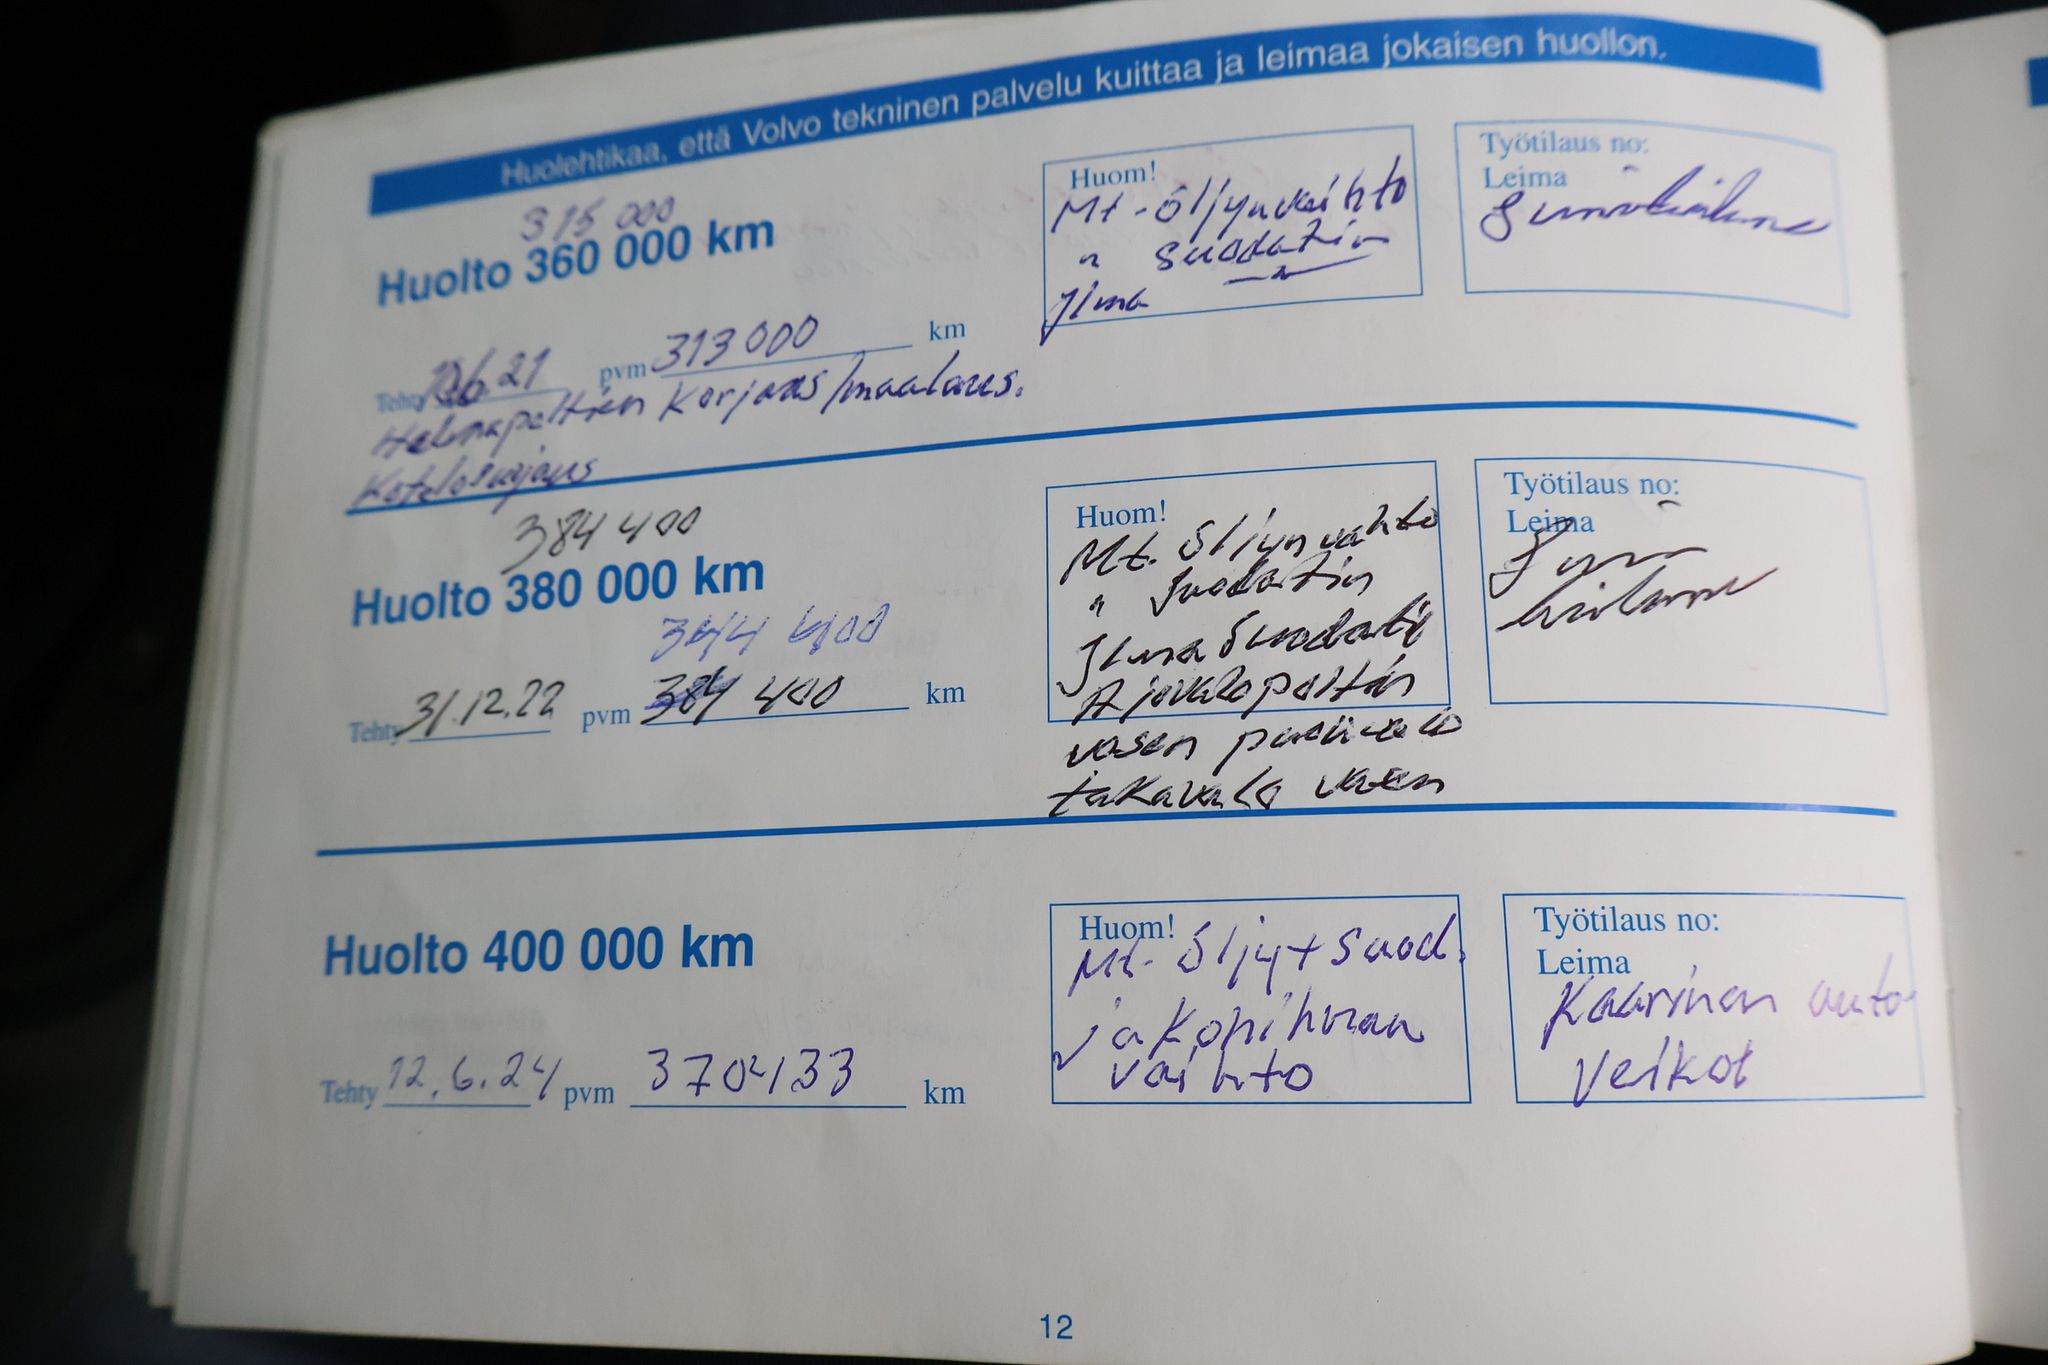 Huolehtikaa, että Volvo tekninen palvelu kuittaa ja leimaa jokaisen huollon.
315 000
Huolto 360 000 km
Tehty 21 pvm 313 000 km
Helmapeltien korjaus/maalaus.
Kotelosuojaus
Huom!
Mt-öljynvaihto
" suodatin
Ilma
Työtilaus no:
Leima
384 400
Huolto 380 000 km
400
Tehty 31.12.22 pvm 384 400 km
Huom!
Mt. öljynvaihto
" suodatin
Ilma suodatin
vasen
takavalo vasen
Työtilaus no:
Leima
Huolto 400 000 km
Tehty 12.6.24 pvm 370433 km
Huom!
Mt- öljy+suod.
ja kopihman
vaihto
Työtilaus no:
Leima
Kaarinan auto
veikot
12